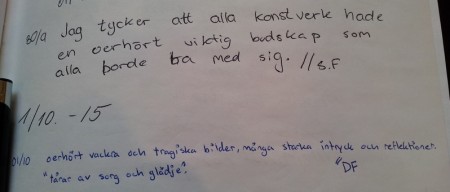 30/9 Jag tycker att alla konstverk hade
en oerhört viktig budskap som
alla borde ta med sig. //S.F
1/10. -15
01/10 oerhört vackra och tragiska bilder, många starka intryck och reflektioner.
"tårar av sorg och glädje".
DF